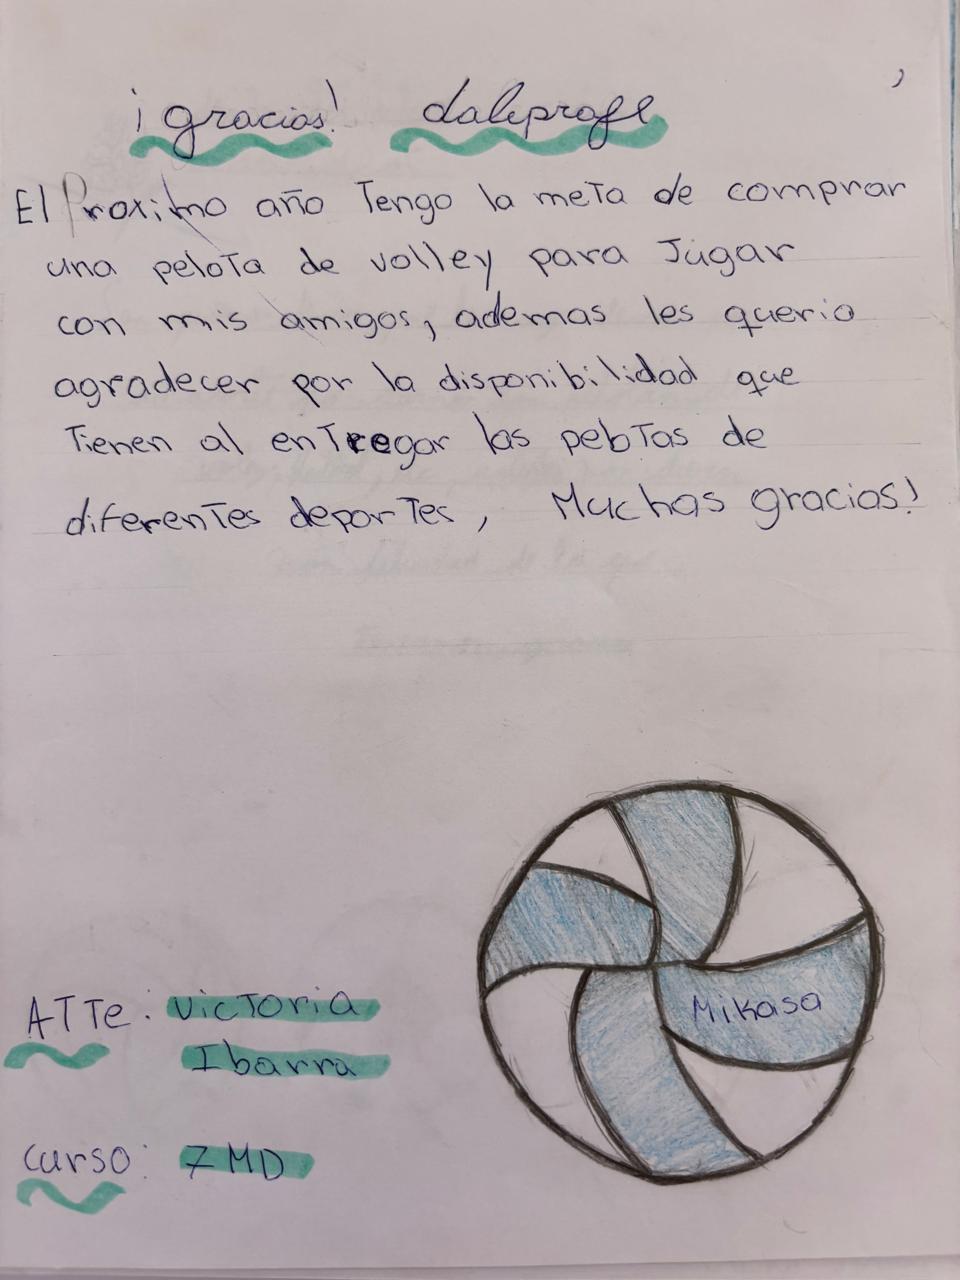 ¡gracias! daleprofe
El Proximo año Tengo la meta de comprar
una pelota de volley para Jugar
con mis amigos, ademas les queria
agradecer por la disponibilidad que
Tienen al entregar las pelotas de
diferentes deportes, Muchas gracias!
Mikasa
ATTe: Victoria
Ibarra
curso: 7MD